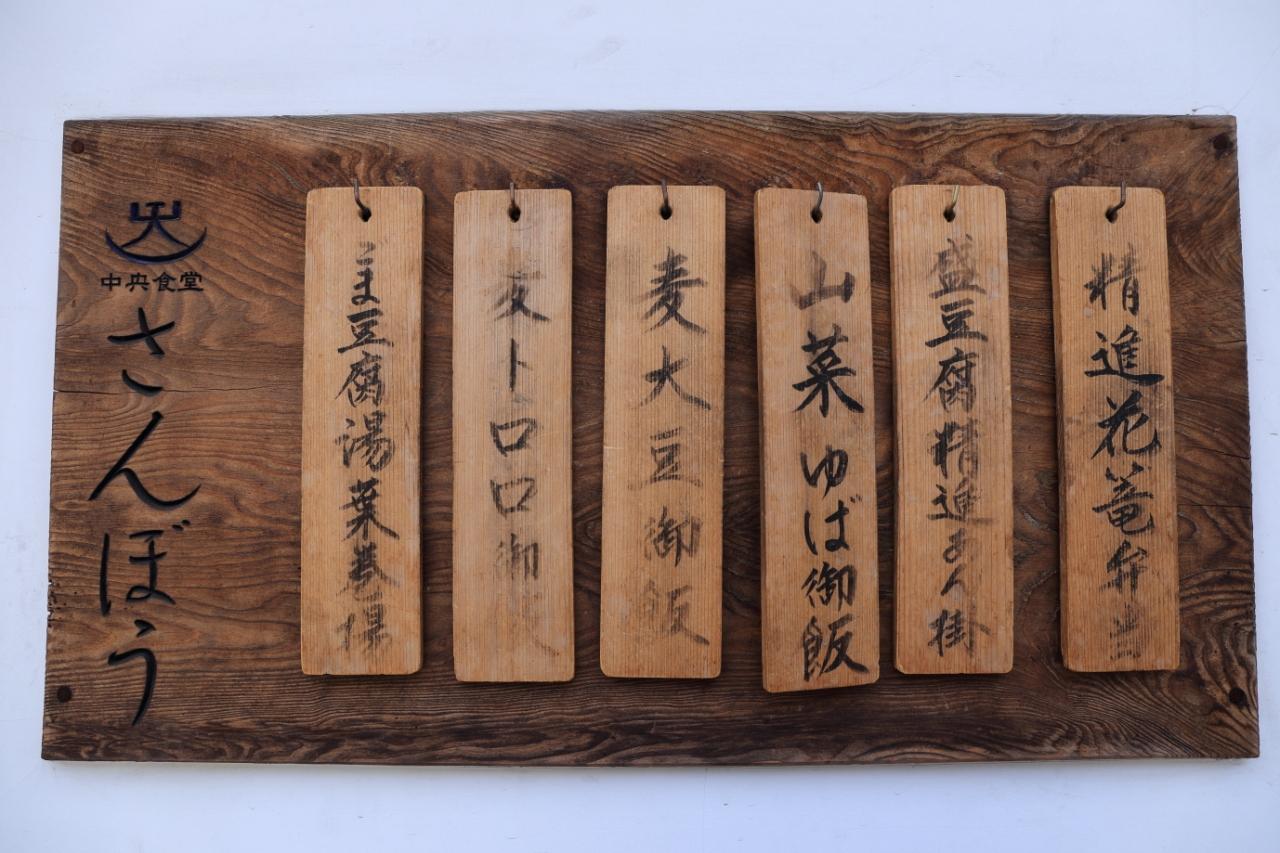 精進花篭弁当
盛豆腐精進あん掛
山菜ゆば御飯
麦大豆御飯
麦トロロ御飯
ごま豆腐湯葉巻揚
中央食堂
さんぼう